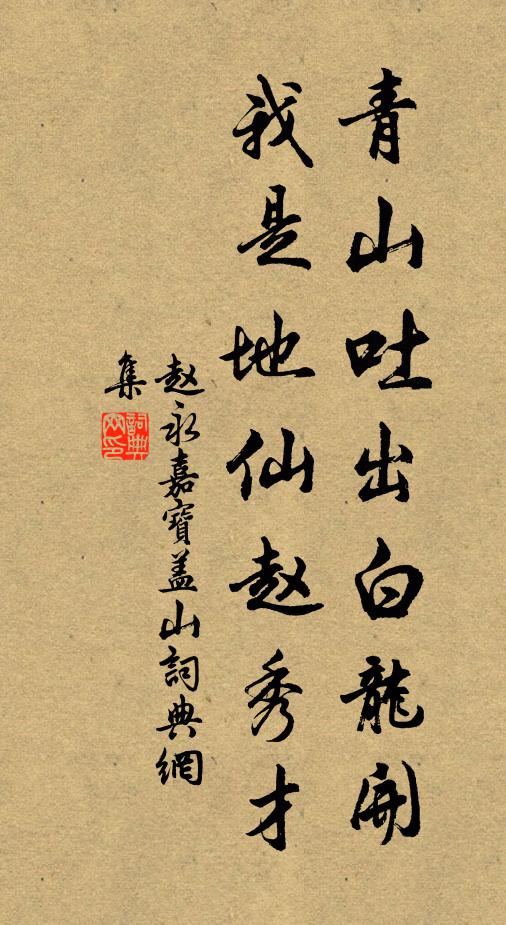 青山吐出白龍開
我是地仙赵秀才
赵永嘉寶盖山詞典網
集
詞典
网印